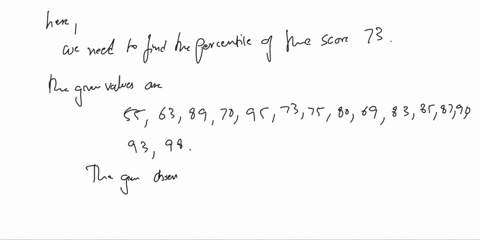 here,
we need to find the percentile of the score 73.
The given values are
55, 63, 89, 70, 95, 73, 75, 80, 69, 83, 85, 87, 90
93, 98.
The given obser